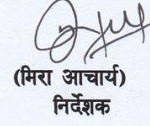 (मिरा आचार्य)
निर्देशक